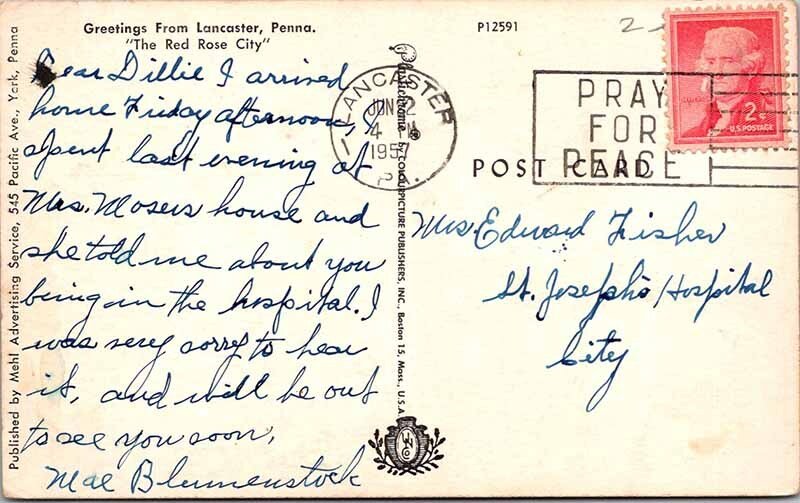 Greetings From Lancaster, Penna.
"The Red Rose City"
P12591
Dear Dillie I arrived
home Friday afternoon, I
spent last evening at
Mrs. Mosers house and
she told me about you
being in the hospital. I
was very sorry to hear
it, and will be out
to see you soon,
Mae Blumenstock
LANCASTER
JUN 2
4
1957
PA.
PRAY
FOR
PEACE
2¢
U.S. POSTAGE
POST CARD
Mrs. Edward Fisher
St. Joseph's Hospital
City
Published by Mehl Advertising Service, 545 Pacific Ave., York, Penna
Plastichrome by COLOURPICTURE PUBLISHERS, INC., Boston 15, Mass., U.S.A.